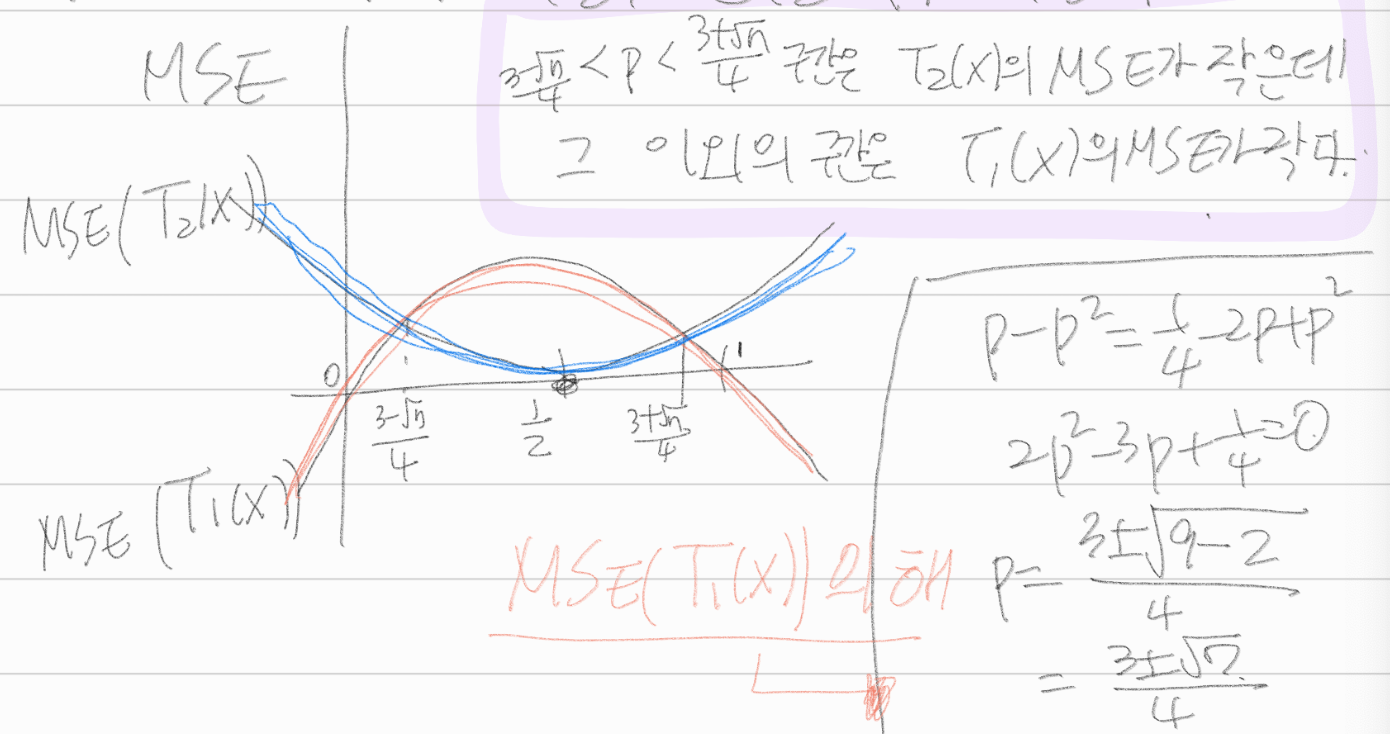 MSE
3-√7/4 < p < 3+√7/4 구간은 T₂(X)의 MSE가 작은데
그 이외의 구간은 T₁(X)의 MSE가 작다.
MSE(T₂(X))
0
3-√7/4
1/2
3+√7/4
1
MSE(T₁(X))
MSE(T₁(X))의 해
p-p²=1/4-2p+p²
2p²-3p+1/4=0
p=3±√9-2/4
=3±√7/4